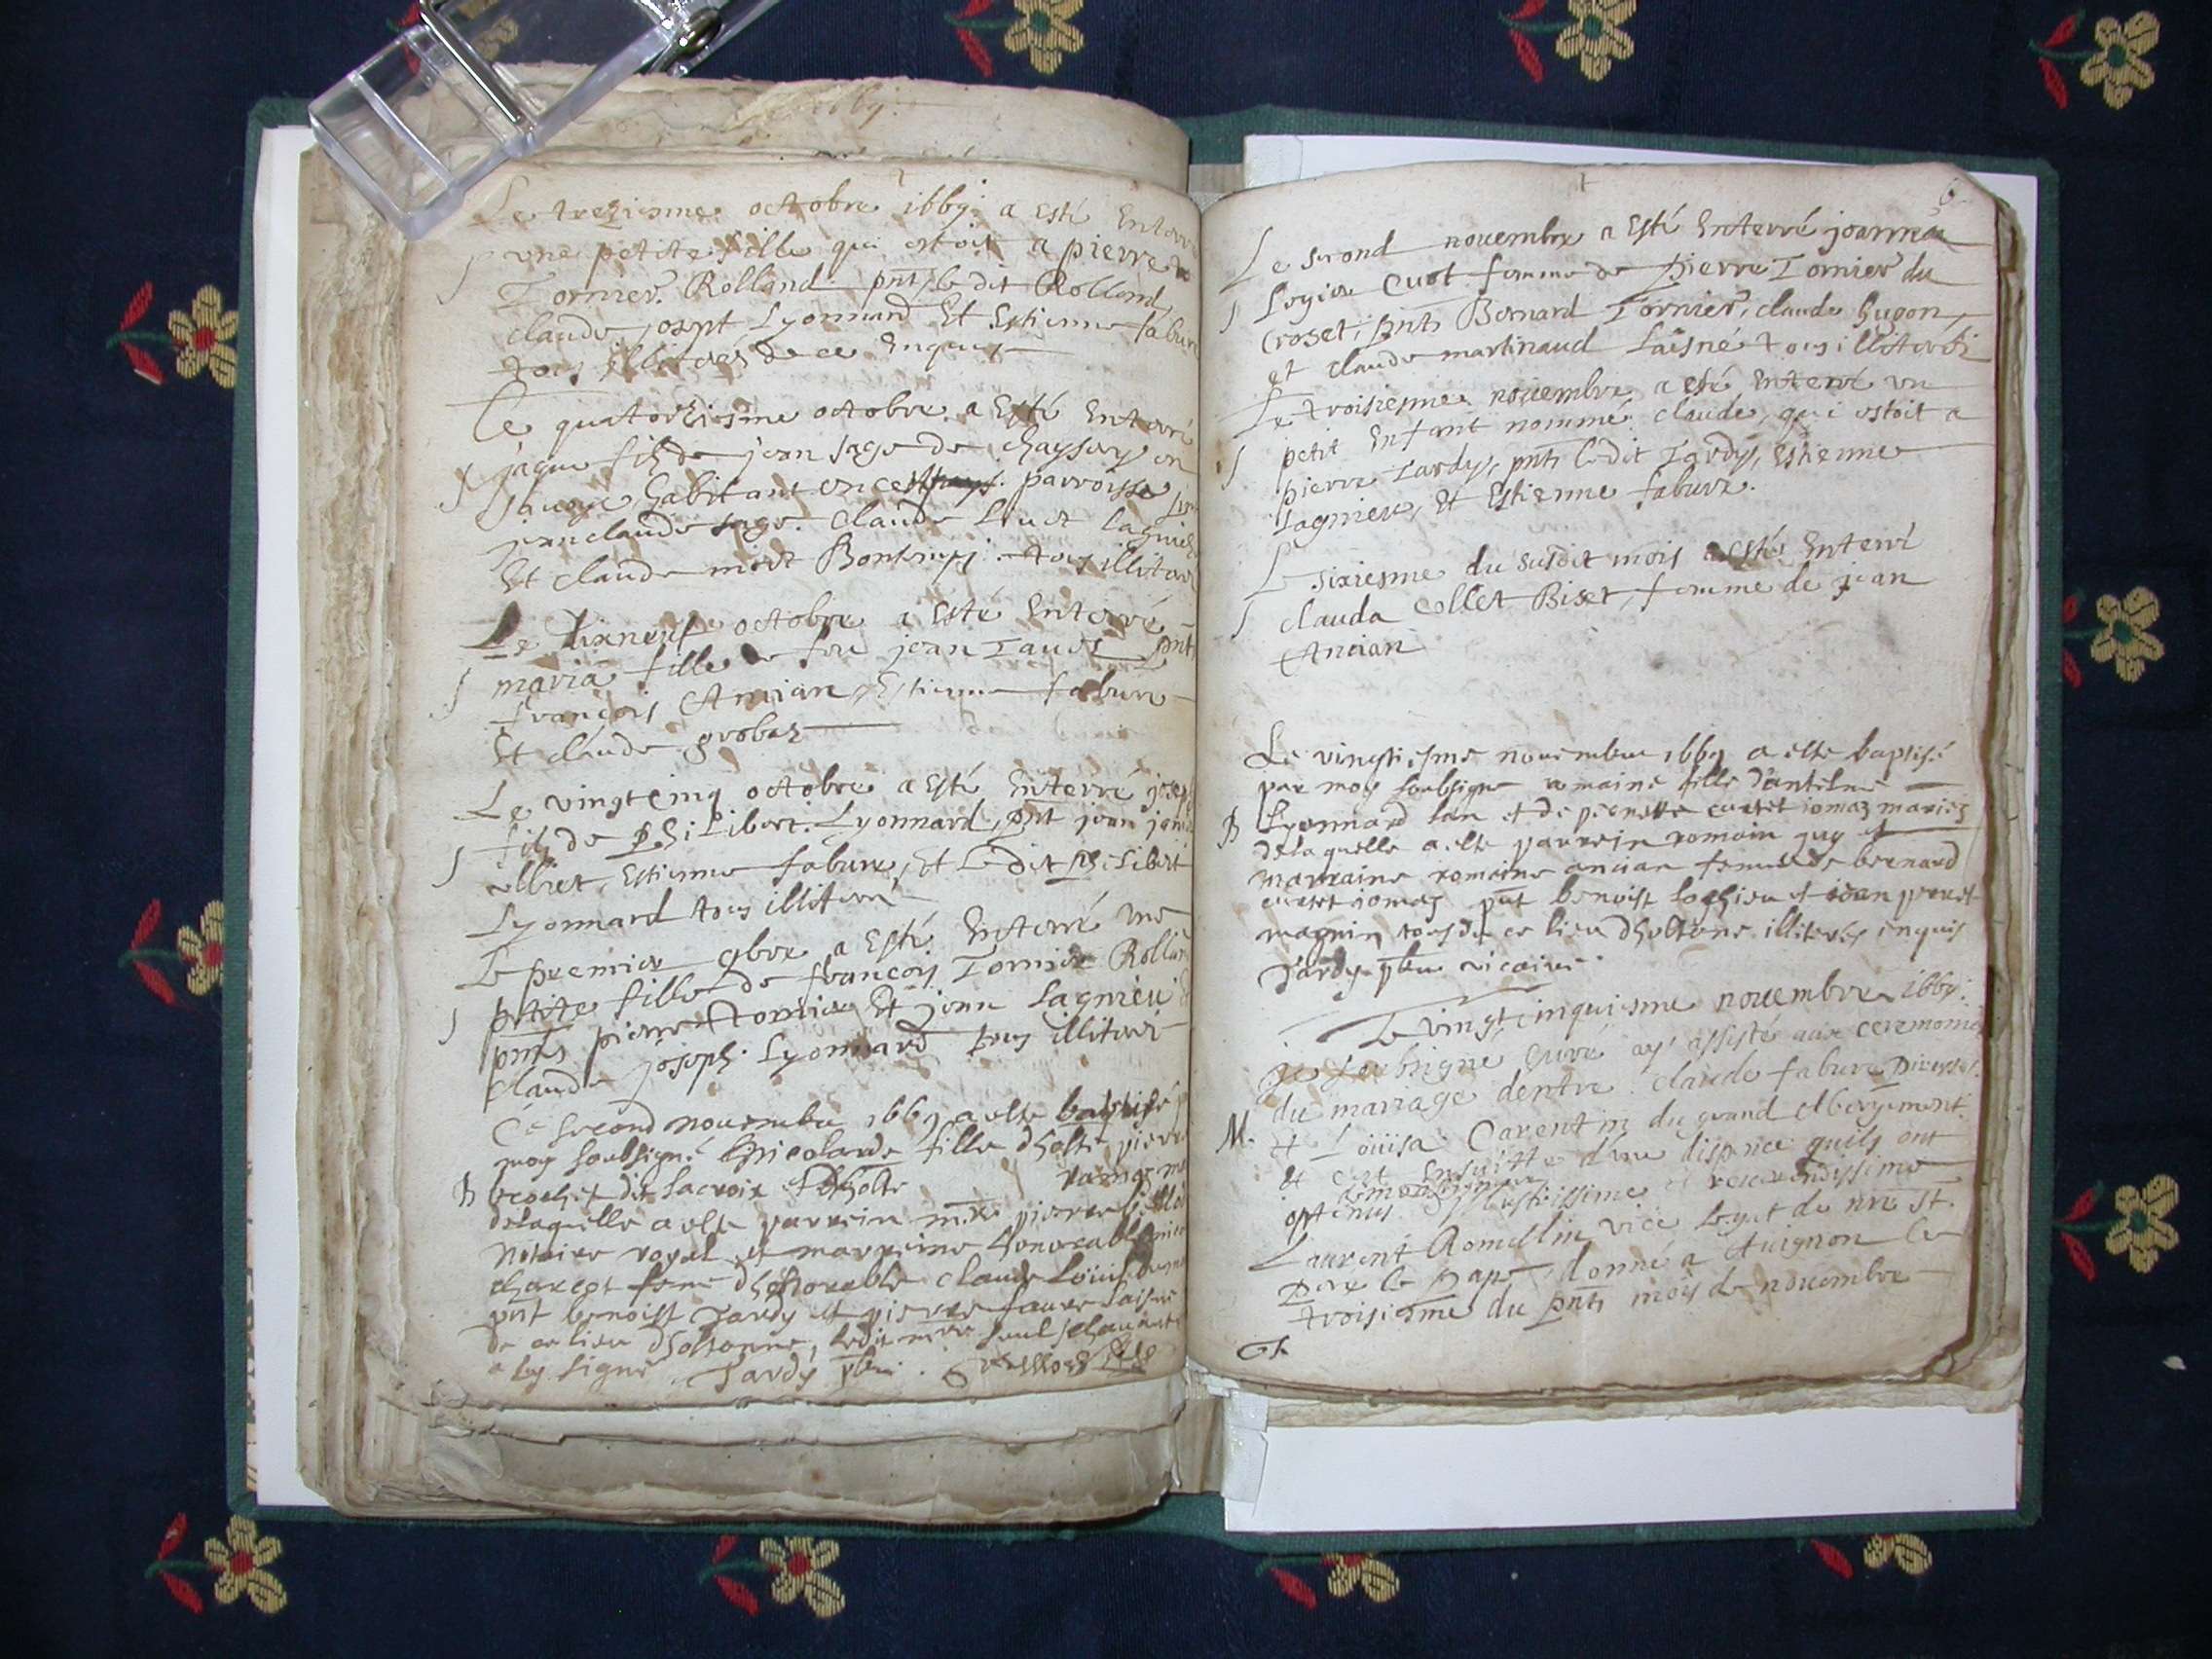 1669
Le treziesme octobre 1669 a esté Enterré
S une petite fille qui estoit a pierre
Tornier Rolland pnts le dit Rolland
claude josept Lyonnard Et Estienne fabure
tous illiterés de ce Enquis
Le quatorziesme octobre a Esté Enterré
S jaque fils de jean sage de en
savoye habitant en ceste parroisse
jean claude sage. Claude Lagnieu
Et claude tous illiterés
Le dixneuf octobre a Esté Enterré
S maria fille de feu jean pnts
françois Ancian, Estienne fabure
Et claude grobas
Le vingtcinq octobre a Esté Enterré
S fils de Philibert Lyonnard, pnt jean
Estienne fabure, Et le dit Philibert
Lyonnard tous illiterés
Le premier 9bre a Esté Enterré une
S petite fille de françois Tornier Rolland
pnts pierre Tornier Et jean Lagnieu
Claude joseph Lyonnard tous illiterés
Le second novembre 1669 a este baptisé
moy soubsigné fille dholti pierre
B brochet dit Lacroix et
delaquelle a este parrein mre pierre
Notaire royal et marreine honorable
charcot feme dhonorable claude Louis
pnt benoist Tardy et pierre faure laisné
de ce lieu dholtonne, ledit mre seul
a luy signé. Tardy pbre.
6
Le second novembre a Esté Enterré joanna
S Legier Cuot femme de Pierre Tornier du
Croset, pnts Bernard Tornier, claude hugon,
et claude martinaud Laisné tous illiterés
Le troisiesme novembre a esté Enterré un
S petit Enfant nommé claude, qui estoit a
pierre Tardy, pnts ledit Tardy, Estienne
Lagnieu, Et Estienne fabure.
Le sixiesme du susdit mois a esté Enterré
S clauda Collet Biset, femme de jean
Ancian
Le vingtiesme novembre 1669 a este baptisé
par moy soubsigne romaine fille dantelme
B Lyonnard lan et de pernette curtet iomaz mariés
delaquelle a este parrein romain guy et
marraine romaine ancian femme de bernard
curtet iomaz pnt benoist loghieu et iean perret
magnin tous de ce lieu dholtone illiterés enquis
Tardy pbre vicaire
Le vingtcinquiesme novembre 1669
je soubsigné Curé ay assisté aux ceremonies
du mariage dentre claude fabure
M. et Loüisa Carentin du grand Abergement.
et c'est Ensuitte d'une dispence quils ont
optenus de monseigneur Illustrissime et reverendissime
Laurent Romellin vice legat de nre St.
Pere le Pape, donné a Avignon le
troisiesme du pnts mois de novembre
Et